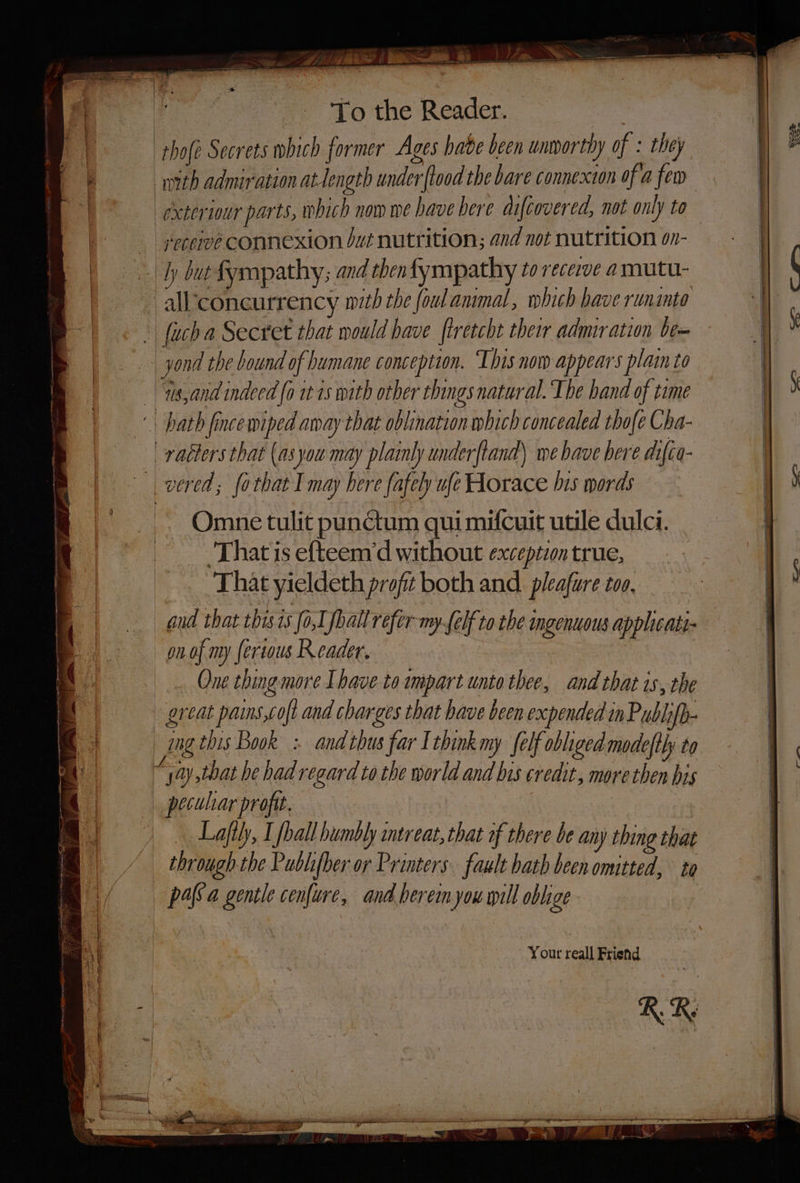 To the Reader.
thoſe Secrets which former Ages have been unworthy of : they
with admiration at length underſtood the bare connexion of a few
exteriour parts, which now we have here diſcovered, not only to
receive connexion but nutrition; and not nutrition on-
ly but ſympathy; and then ſympathy to receive a mutu-
all concurrency with the ſoul animal, which have run into
ſuch a Secret that would have ſtretcht their admiration be-
yond the bound of humane conception. This now appears plain to
us, and indeed ſo it is with other things natural. The hand of time
hath ſince wiped away that oblination which concealed thoſe Cha-
racters that (as you may plainly underſtand) we have here diſco-
vered; ſo that I may here ſafely uſe Horace his words
Omne tulit punctum qui miſcuit utile dulci.
That is eſteem'd without exception true,
That yieldeth profit both and pleaſure too.
and that this is ſo, I ſhall refer my ſelf to the ingenuous applicati-
on of my ſerious Reader.
One thing more I have to impart unto thee, and that is, the
great pains, coſt and charges that have been expended in Publiſh-
ing this Book : and thus far I think my ſelf obliged modeſtly to
ſay, that he had regard to the world and his credit, more then his
peculiar profit.
Laſtly, I ſhall humbly intreat, that if there be any thing that
through the Publiſher or Printers fault hath been omitted, to
paſs a gentle cenſure, and herein you will oblige
Your reall Friend
R. R.